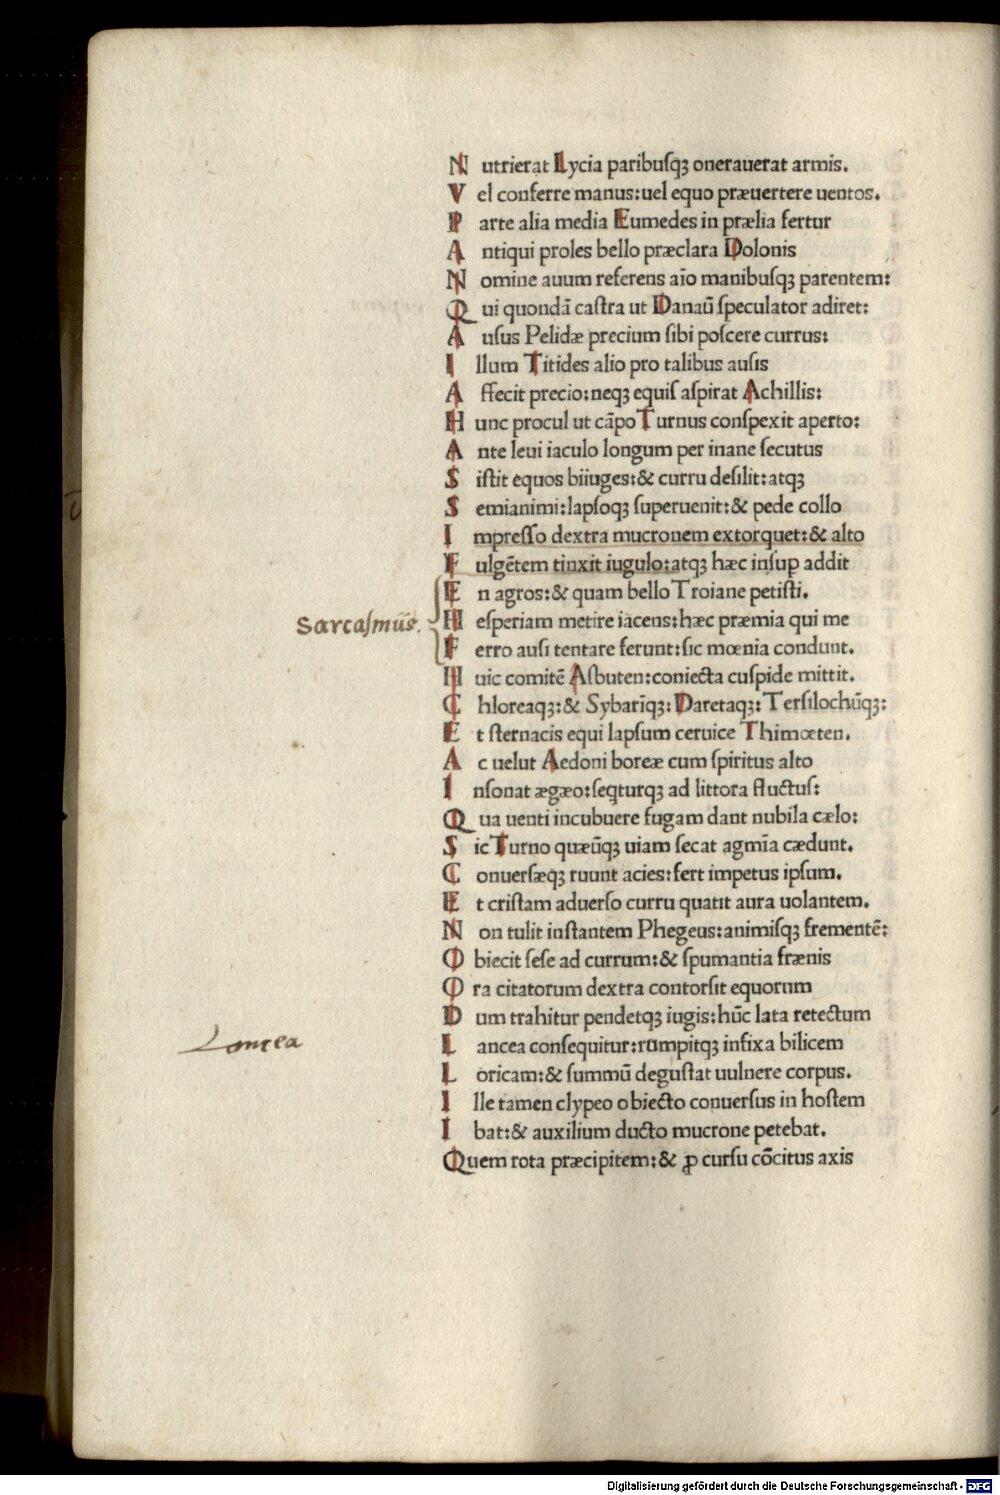 Nutrierat Lycia paribuſqꝫ onerauerat armis.
Vel conferre manus: uel equo præuertere uentos.
Parte alia media Eumedes in prælia fertur
Antiqui proles bello præclara Dolonis
Nomine auum referens aīo manibuſqꝫ parentem:
Qui quondā caſtra ut Danaū ſpeculator adiret:
Auſus Pelidæ precium ſibi poſcere currus:
Illum Titides alio pro talibus auſis
Affecit precio: neqꝫ equiſ aſpirat Achillis:
Hunc procul ut cāpo Turnus conſpexit aperto:
Ante leui iaculo longum per inane ſecutus
Siſtit equos biiuges: & curru deſilit: atqꝫ
Semianimi: lapſoqꝫ ſuperuenit: & pede collo
Impreſſo dextra mucronem extorquet: & alto
Fulgētem tinxit iugulo: atqꝫ hæc inſuꝑ addit
En agros: & quam bello Troiane petiſti.
Sarcaſmus.
Heſperiam metire iacens: hæc præmia qui me
Ferro auſi tentare ferunt: ſic mœnia condunt.
Huic comitē Aſbuten: coniecta cuſpide mittit.
Chloreaqꝫ: & Sybarīqꝫ: Daretaqꝫ: Terſilochūqꝫ:
Et ſternacis equi lapſum ceruice Thimœten.
Ac uelut Aedoni boreæ cum ſpiritus alto
Inſonat ægæo: ſeqturqꝫ ad littora fluctuſ:
Qua uenti incubuere fugam dant nubila cælo:
Sic Turno quæūqꝫ uiam ſecat agmīa cædunt.
Conuerſæqꝫ ruunt acies: fert impetus ipſum.
Et criſtam aduerſo curru quatit aura uolantem.
Non tulit inſtantem Phegeus: animiſqꝫ frementē:
Obiecit ſeſe ad currum: & ſpumantia frænis
Ora citatorum dextra contorſit equorum
Dum trahitur pendetqꝫ iugis: hūc lata retectum
Lancea
Lancea conſequitur: rumpitqꝫ infixa bilicem
Loricam: & ſummū deguſtat uulnere corpus.
Ille tamen clypeo obiecto conuerſus in hoſtem
Ibat: & auxilium ducto mucrone petebat.
Quem rota præcipitem: & ꝓ curſu cōcitus axis
Digitalisierung gefördert durch die Deutsche Forschungsgemeinschaft - DFG